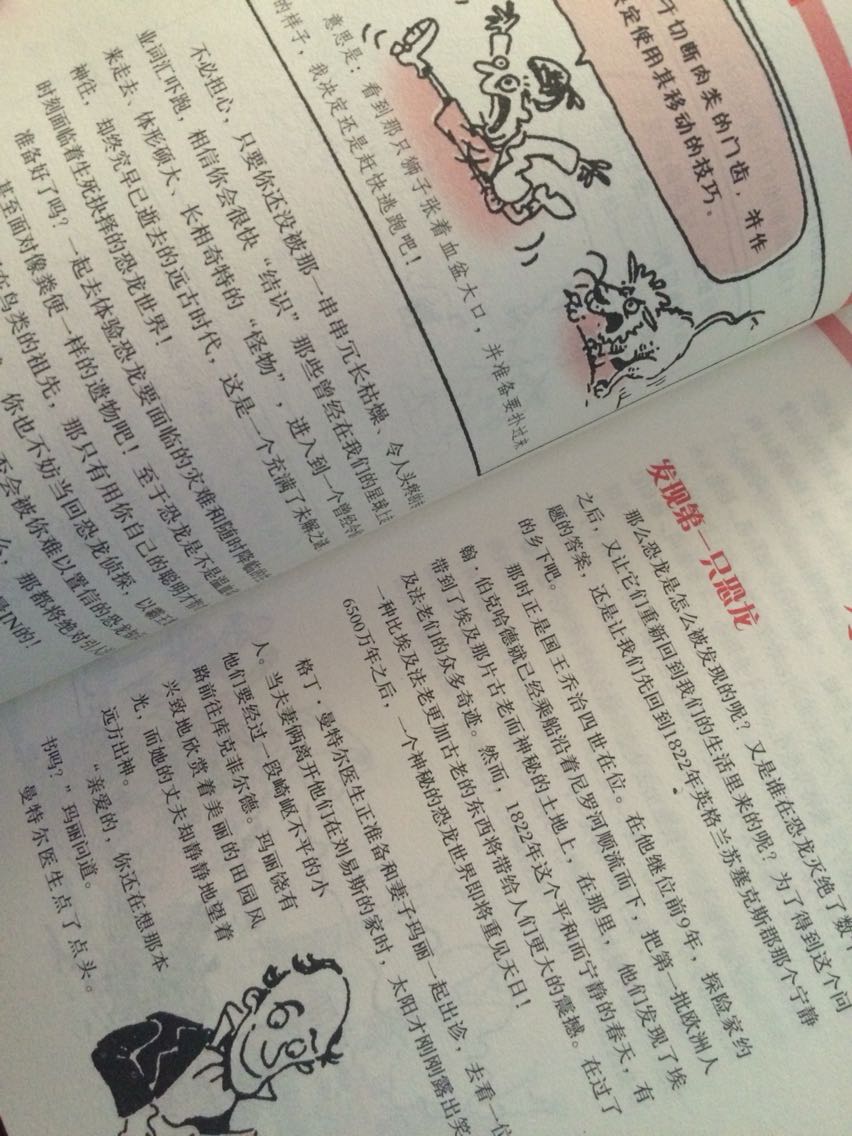 于切断肉类的门齿，并作
决定使用其移动的技巧。
意思是：看到那只狮子张着血盆大口，并准备要扑过来
的样子，我决定还是赶快逃跑吧！
不必担心，只要你还没被那一串串冗长枯燥、令人头疼的专
业词汇吓跑，相信你会很快“结识”那些曾经在我们的星球上
来走去、体形硕大、长相奇特的“怪物”，进入到一个曾经
神往，却终究早已逝去的远古时代，这是一个充满了未解之谜
时刻面临着生死抉择的恐龙世界！
准备好了吗？一起去体验恐龙要面临的灾难和随时降临的
甚至面对像粪便一样的遗物吧！至于恐龙是不是温血
鸟类的祖先，那只有用你自己的聪明才智
你也不妨当回恐龙侦探，以霸王
会被你难以置信的恐龙
么，那都将绝对引人
IN的！
发现第一只恐龙
那么恐龙是怎么被发现的呢？又是谁在恐龙灭绝了数千
之后，又让它们重新回到我们的生活里来的呢？为了得到这个问
题的答案，还是让我们先回到1822年英格兰苏塞克斯郡那个宁静
的乡下吧。
那时正是国王乔治四世在位。在他继位前9年，探险家约
翰·伯克哈德就已经乘船沿着尼罗河顺流而下，把第一批欧洲人
带到了埃及那片古老而神秘的土地上，在那里，他们发现了埃
及法老们的众多奇迹。然而，1822年这个平和而宁静的春天，有
一种比埃及法老更加古老的东西将带给人们更大的震撼。在过了
6500万年之后，一个神秘的恐龙世界即将重见天日！
格丁·曼特尔医生正准备和妻子玛丽一起出诊，去看一位
人。当夫妻俩离开他们在刘易斯的家时，太阳才刚刚露出笑
他们要经过一段崎岖不平的小
路前往库克菲尔德。玛丽饶有
兴致地欣赏着美丽的田园风
光，而她的丈夫却静静地望着
远方出神。
“亲爱的，你还在想那本
书吗？”玛丽问道。
曼特尔医生点了点头。